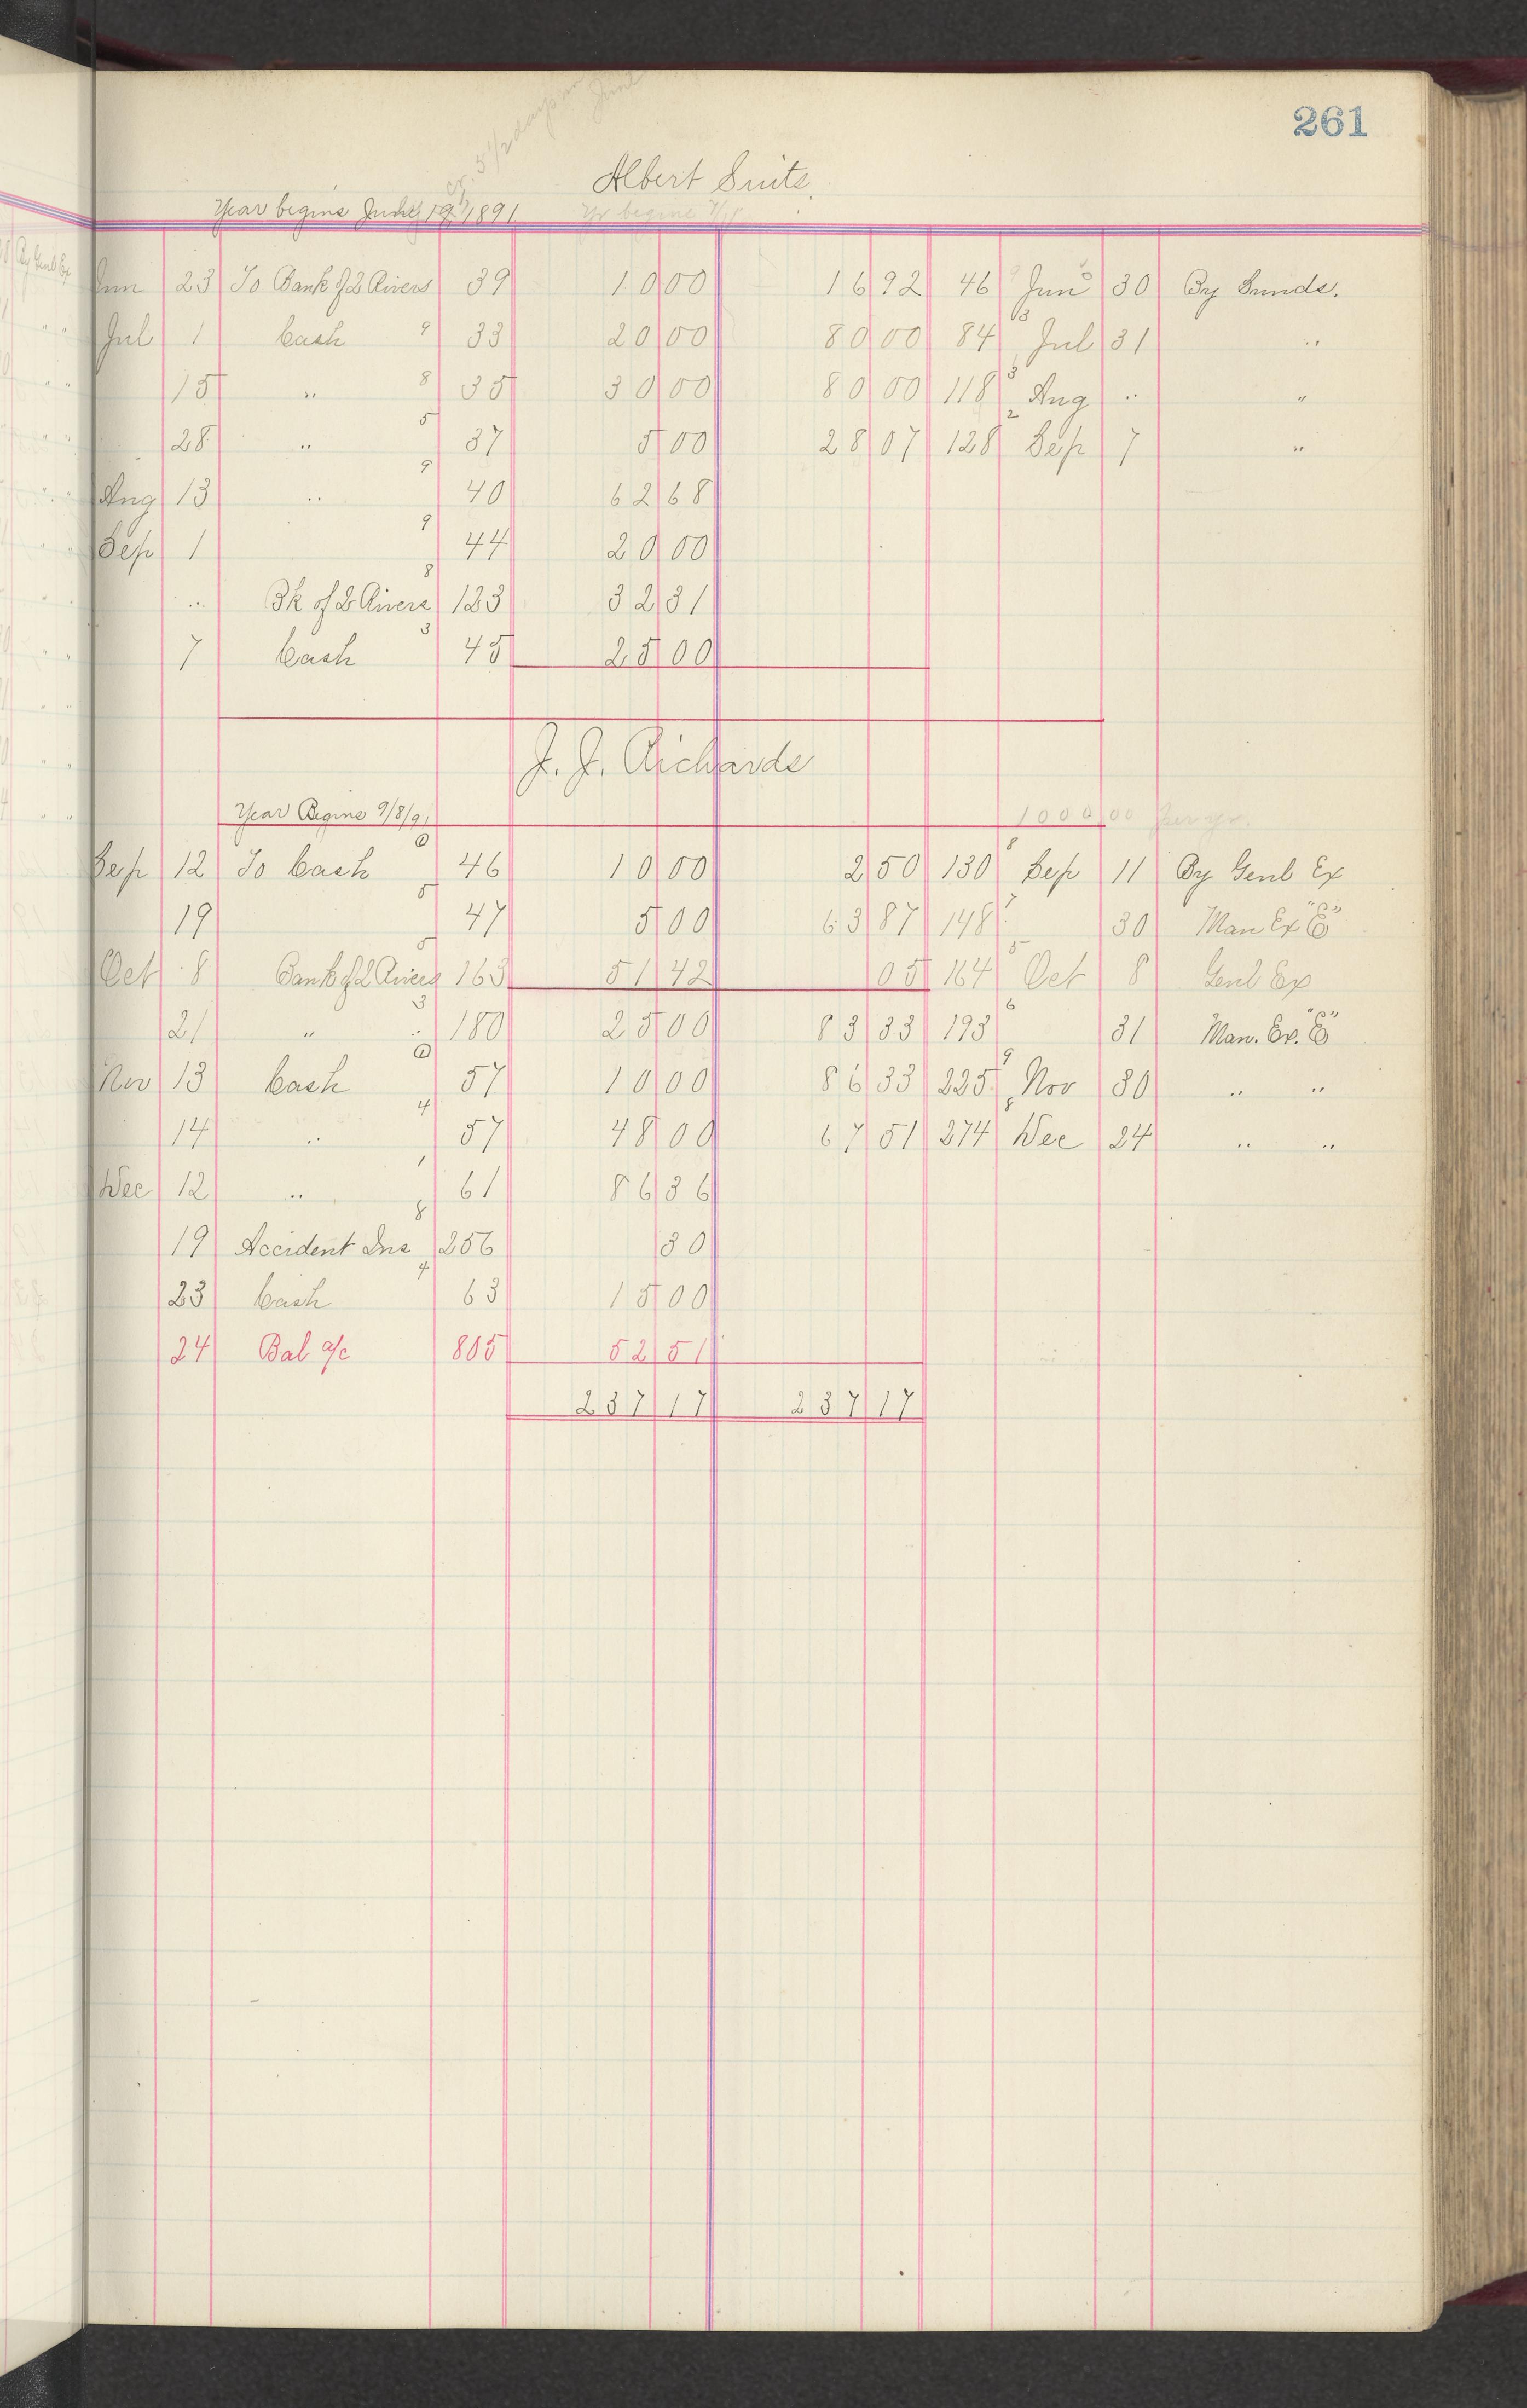 261
Albert Suits.
Year begins June 19, 1891 Yr begins
Jun 23 To Bank of 2 Rivers 39 10 00 16 92 46 Jun 30 By Sunds.
Jul 1 Cash 9 33 20 00 80 00 84 3 Jul 31 "
15 " 8 35 30 00 80 00 118 3 Aug " "
28 " 5 37 5 00 28 07 128 2 Sep 7 "
Aug 13 " 9 40 62 68
Sep 1 9 44 20 00
" Bk of 2 Rivers 8 123 32 31
7 Cash 3 45 25 00
J. J. Richards
Year Begins 9/8/91 1000 00 per yr.
Sep 12 To Cash 46 10 00 2 50 130 8 Sep 11 By Genl Ex
19 5 47 5 00 63 87 148 7 30 Man Ex "E"
Oct 8 Bank of 2 Rivers 5 163 51 42 05 164 5 Oct 8 Genl Ex
21 " " 3 180 25 00 83 33 193 6 31 Man. Ex. "E"
Nov 13 Cash 57 10 00 86 33 225 9 Nov 30 " "
14 " 4 57 48 00 67 51 274 8 Dec 24 " "
Dec 12 " 1 61 86 36
19 Accident Ins 8 256 30
23 Cash 4 63 15 00
24 Bal a/c 805 52 51
237 17 237 17